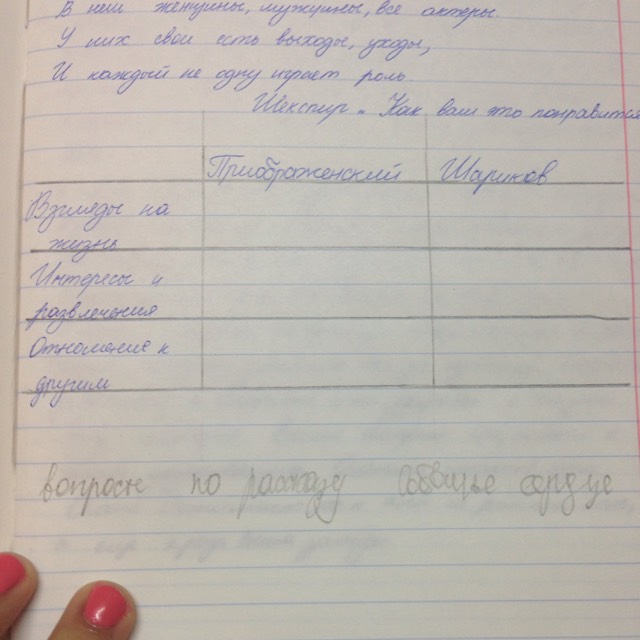 В нем женщины, мужчины, все актеры.
У них свои есть выходы, уходы,
И каждый не одну играет роль.
Шекспир „ Как вам это понравится
Приображенский Шариков
Взгляды на
жизнь
Интересы и
развлечения
Отношение к
другим
вопросы по рассказу Собачье сердце